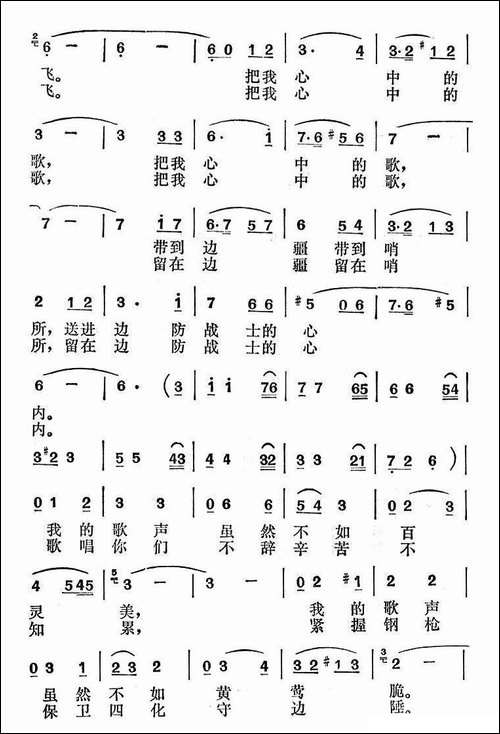 2 6 — | 6 — | 6 0 1 2 | 3· 4 | 3·2 #1 2
飞。 把我心 中的
飞。 把我心 中的
3 — | 3 3 3 | 6· i | 7·6 #5 6 | 7 —
歌, 把我心 中的歌,
歌, 把我心 中的歌,
7 — | 7 i 7 | 6·7 5 7 | 6 5 4 | 3·2 1 3
带到边 疆带到哨
留在边 疆留在哨
2 1 2 | 3· i | 7 6 6 | #5 0 6 | 7·6 #5
所,送进边 防战士的心
所,留在边 防战士的心
6 — | 6· (3 | i i 76 | 7 7 65 | 6 6 54
内。
内。
3 #2 3 | 5 5 43 | 4 4 32 | 3 3 21 | 7 2 6 )
0 1 2 | 3 3 | 0 6 6 | 5 4 3 | 0 2 3
我的歌声虽然不如百
歌唱你们不辞辛苦不
4 5 45 | 5 3 — | 3 — | 0 2 #1 | 2 2
灵 美, 我的歌声
知 累, 紧握钢枪
0 3 3 | 2 2 3 | 0 3 4 | 3 2 #1 3 | 3 2 —
虽然不如黄莺 脆。
保卫四化守边 陲。